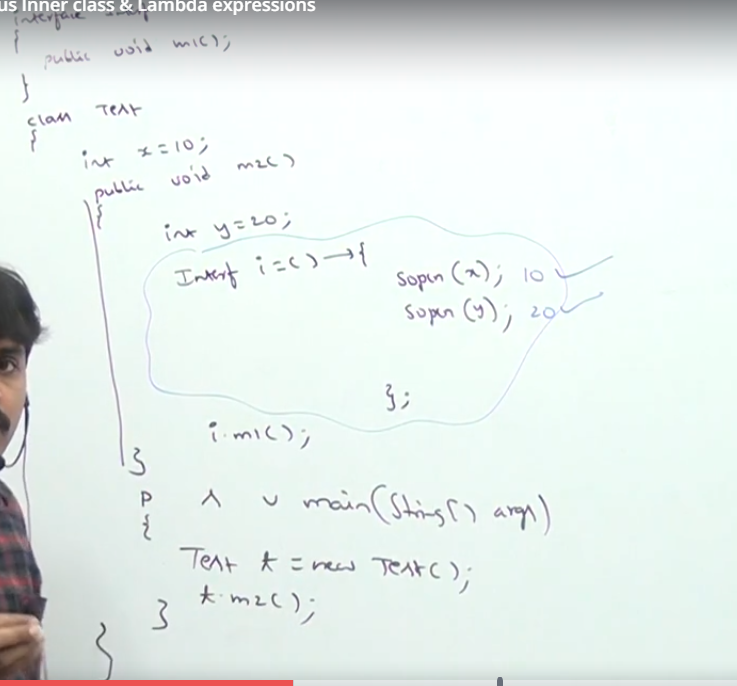 us Inner class & Lambda expressions
interface
{
public void m1();
}
class Test
{
int x=10;
public void m2()
{
int y=20;
Interf i=()→{
sopln(x); 10
sopln(y); 20
};
i.m1();
}
P s v main(String[] args)
{
Test t = new Test();
t.m2();
}
}